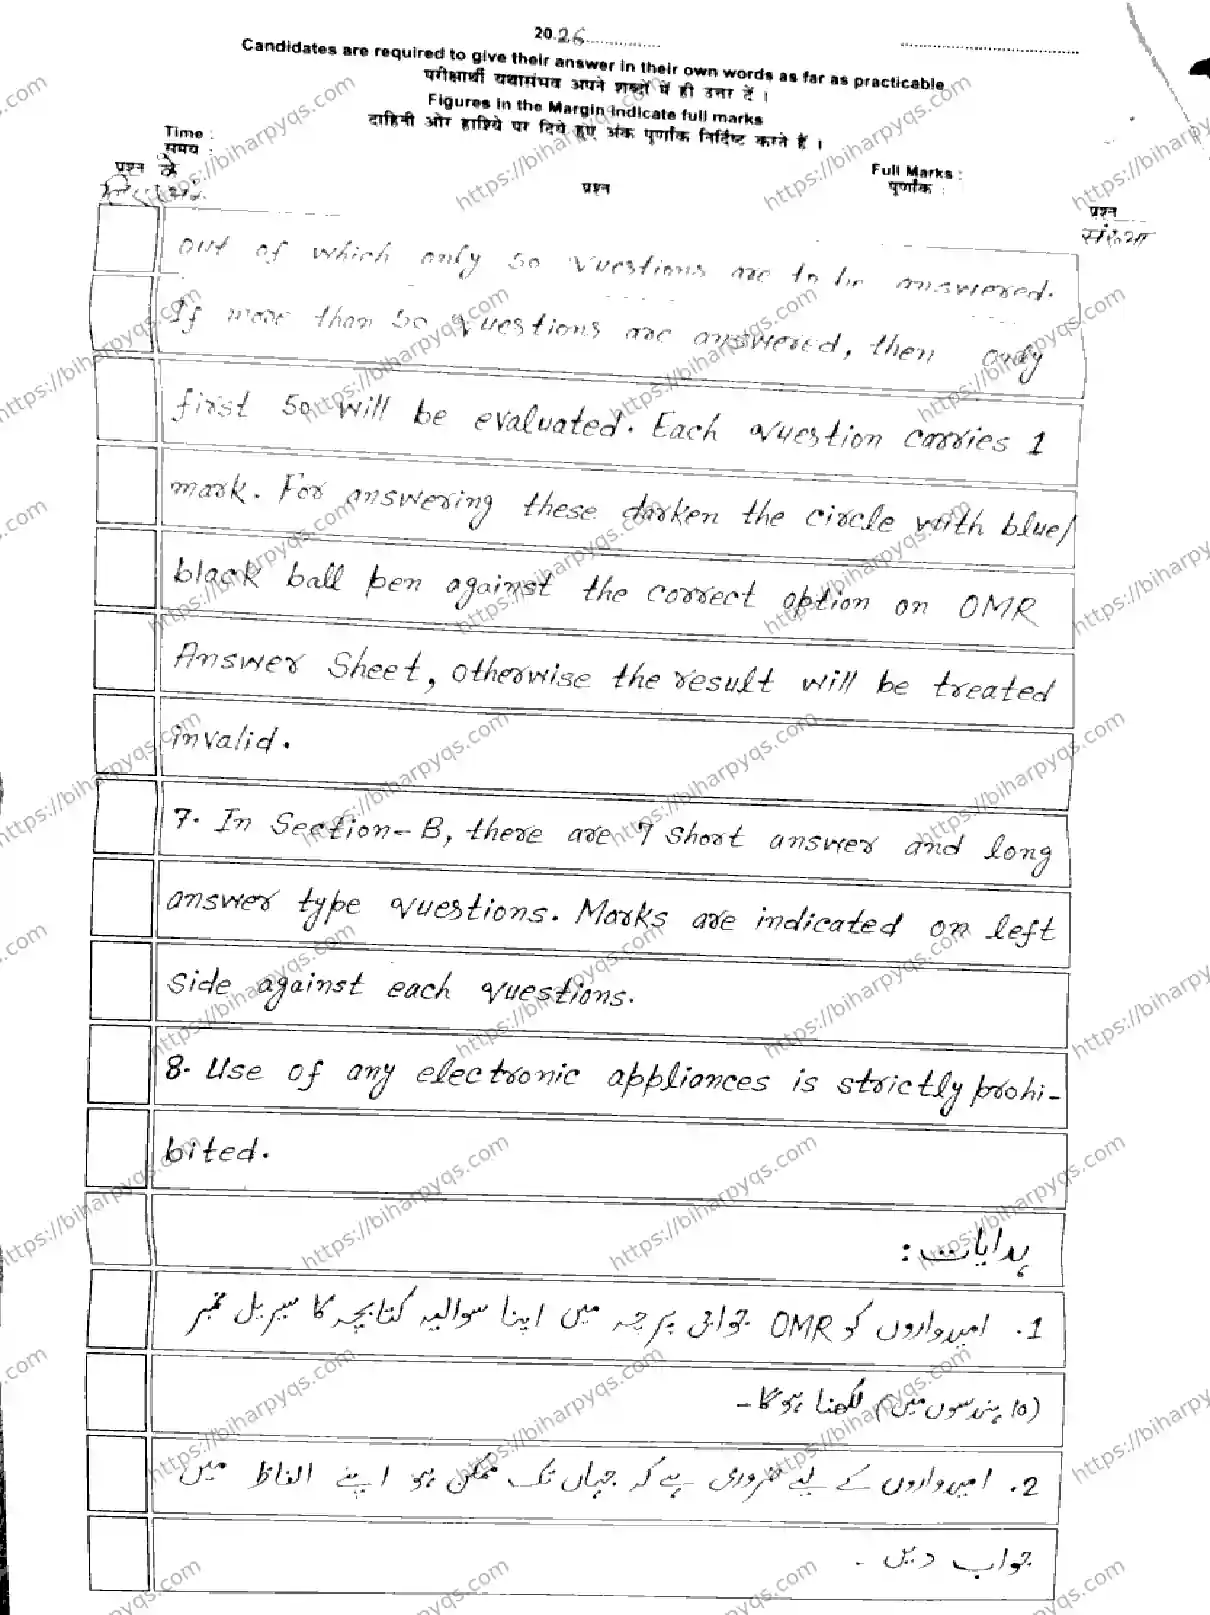 2026
Candidates are required to give their answer in their own words as far as practicable
परीक्षार्थी यथासंभव अपने शब्दों में ही उत्तर दें ।
Figures in the Margin indicate full marks
दाहिनी ओर हाशिये पर दिये हुए अंक पूर्णांक निर्दिष्ट करते हैं ।
Time :
समय :
Full Marks :
पूर्णांक :
प्रश्न के
प्रश्न
प्रश्न
संख्या
out of which only 50 questions are to be answered.
If more than 50 questions are answered, then only
first 50 will be evaluated. Each question carries 1
mark. For answering these darken the circle with blue/
black ball pen against the correct option on OMR
Answer Sheet, otherwise the result will be treated
invalid.
7. In Section-B, there are 7 short answer and long
answer type questions. Marks are indicated on left
side against each questions.
8. Use of any electronic appliances is strictly prohi-
bited.
ہدایات :
1. امیدواروں کو OMR جوابی پرچہ میں اپنا سوالیہ کتابچہ کا سیریل نمبر
(10 ہندسوں میں) لکھنا ہوگا-
2. امیدواروں کے لیے ضروری ہے کہ جہاں تک ممکن ہو اپنے الفاظ میں
جواب دیں -
https://biharpyqs.com